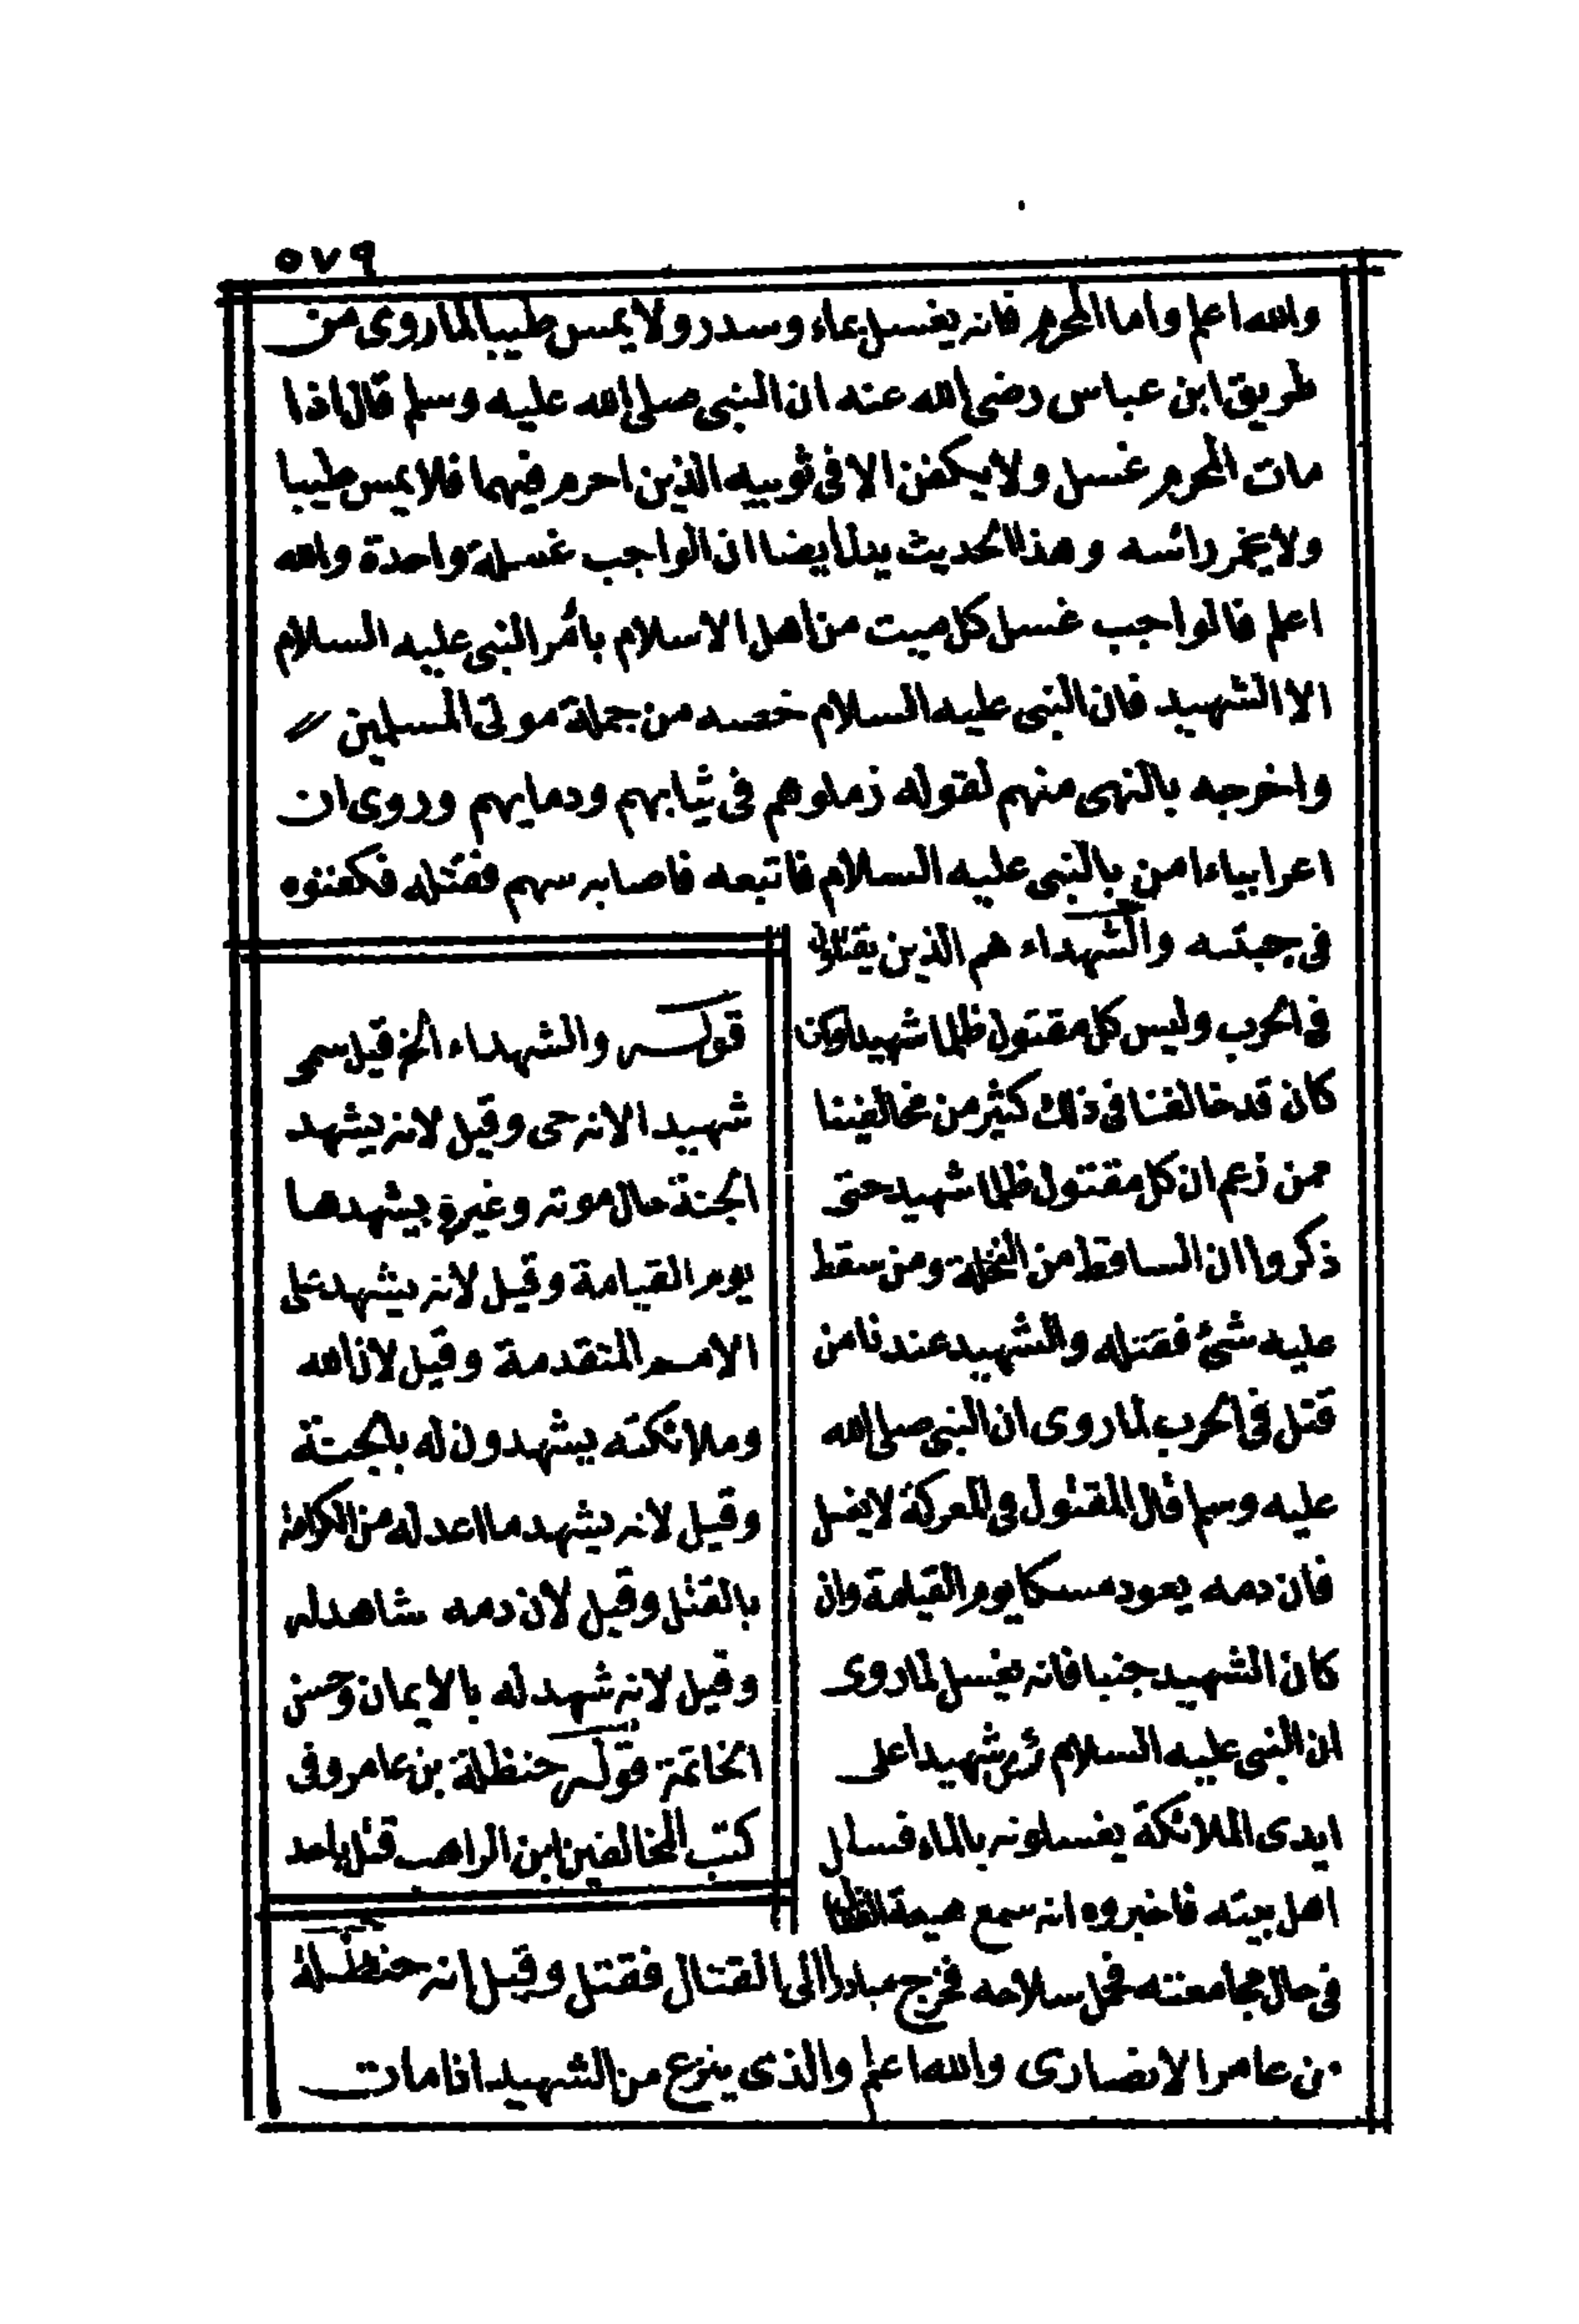 ٥٧٩
والله اعلم واما المحرم فانه يغسل بماء وسدر ولا يمس طيبا لما روى من
طريق ابن عباس رضى الله عنه ان النبى صلى الله عليه وسلم قال اذا
مات المحرم غسل ولا يكفن الا فى ثوبيه الذين احرم فيهما فلا يمس طيبا
ولا يخمر رائسه وهذا الحديث يدل ايضا ان الواجب غسلة واحدة والله
اعلم فالواجب غسل كل ميت من اهل الاسلام بأمر النبى عليه السلام
الا الشهيد فان النبى عليه السلام خصه من جملة موتى المسلمين
واخرجه بالنهى منهم لقوله زملوهم فى ثيابهم ودمايهم وروى ان
اعرابياءا من بالنبى عليه السلام فاتبعه فاصابه سهم فقتله فكفنوه
فى جبته والشهداء هم الذين يقتلون
فى الحرب وليس كل مقتول ظلما شهيدا وان
كان قد خالفنا فى ذلك كثير من مخالفينا
من زعم ان كل مقتول ظلما شهيد حتى
ذكروا ان الساقط من النخلة ومن سقط
عليه شئ فقتله والشهيد عندنا من
قتل فى الحرب لما روى ان النبى صلى الله
عليه وسلم قال المقتول فى المعركة لا يغسل
فان دمه يعود مسكا يوم القيامة وان
كان الشهيد جنبا فانه يغسل لما روى
ان النبى عليه السلام رئى شهيدا على
ايدى الملائكة يغسلونه بالماء فسال
اهل بيته فاخبروه انه سمع صيحة القتال
فى حال مجامعته فحمل سلاحه فخرج مبادرا الى القتال فقتل وقيل انه حنظلة
بن عامر الانصارى والله اعلم والذى ينزع من الشهيد اذا مات
قوله والشهداء الخ قيل سمى
شهيدا لانه حى وقيل لانه يشهد
الجنة حال موته وغيره يشهدها
يوم القيامة وقيل لانه يشهد على
الامم المتقدمة وقيل لان الله
وملائكته يشهدون له بالجنة
وقيل لانه يشهد ما اعد له من الكرامة
بالقتل وقيل لان دمه شاهد له
وقيل لانه شهد له بالايمان وحسن
الخاتمة قوله حنظلة بن عامر وفى
كتب المخالفين ابن الراهب قتل باحد